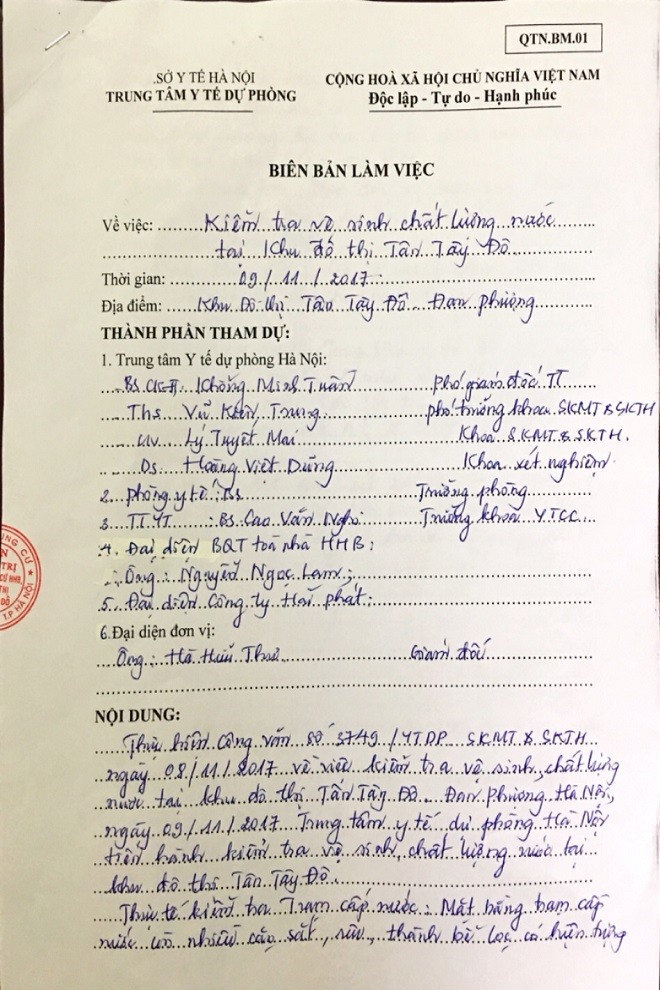 QTN.BM.01
SỞ Y TẾ HÀ NỘI
TRUNG TÂM Y TẾ DỰ PHÒNG
CỘNG HOÀ XÃ HỘI CHỦ NGHĨA VIỆT NAM
Độc lập - Tự do - Hạnh phúc
BIÊN BẢN LÀM VIỆC
Về việc: Kiểm tra vệ sinh chất lượng nước
tại Khu đô thị Tân Tây Đô
Thời gian: 09/11/2017
Địa điểm: Khu Đô thị Tân Tây Đô - Đan Phượng
THÀNH PHẦN THAM DỰ:
1. Trung tâm Y tế dự phòng Hà Nội:
Bs.CKII. Khổng Minh Tuấn Phó giám đốc TT
Ths Vũ Kiên Trung phó trưởng khoa SKMT & SKTH
Lý Tuyết Mai Khoa SKMT & SKTH.
Ds. Hoàng Việt Dũng Khoa xét nghiệm
2. Phòng y tế: Bs Trưởng phòng
3. TTYT: Bs. Cao Văn Trưởng khoa YTCC
4. Đại diện BQT toà nhà HHB:
Ông: Nguyễn Ngọc Lam;
5. Đại diện Công ty Hải phát:
6. Đại diện đơn vị:
Ông: Hà Hữu Giám đốc
NỘI DUNG:
Thực hiện Công văn số 3749/YTDP SKMT & SKTH
ngày 08/11/2017 về việc kiểm tra vệ sinh, chất lượng
nước tại khu đô thị Tân Tây Đô - Đan Phượng Hà Nội,
ngày 09/11/2017 Trung tâm y tế dự phòng Hà Nội
tiến hành kiểm tra vệ sinh, chất lượng nước tại
khu đô thị Tân Tây Đô.
Thực tế kiểm tra Trạm cấp nước: Mặt bằng trạm cấp
nước có nhiều cặn sắt, thành bể lọc có hiện tượng